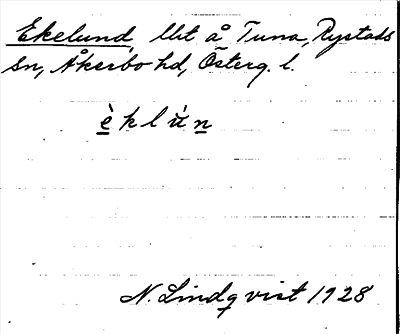 Ekelund, lht å Tuna, Rystads
sn, Åkerbo hd, Österg. l.
è k l ù n
N. Lindqvist 1928